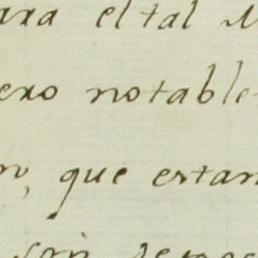 ara el tal
ero notable
, que estan
son